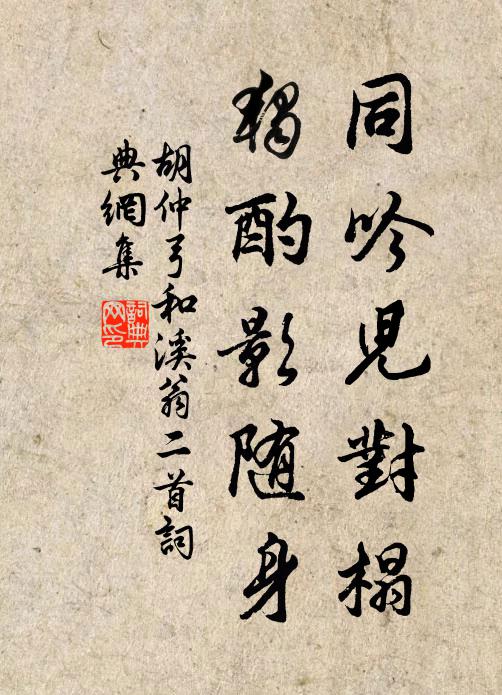 同吟児對榻
獨酌影随身
胡仲弓和溪翁二首詞
典網集
詞典
网印